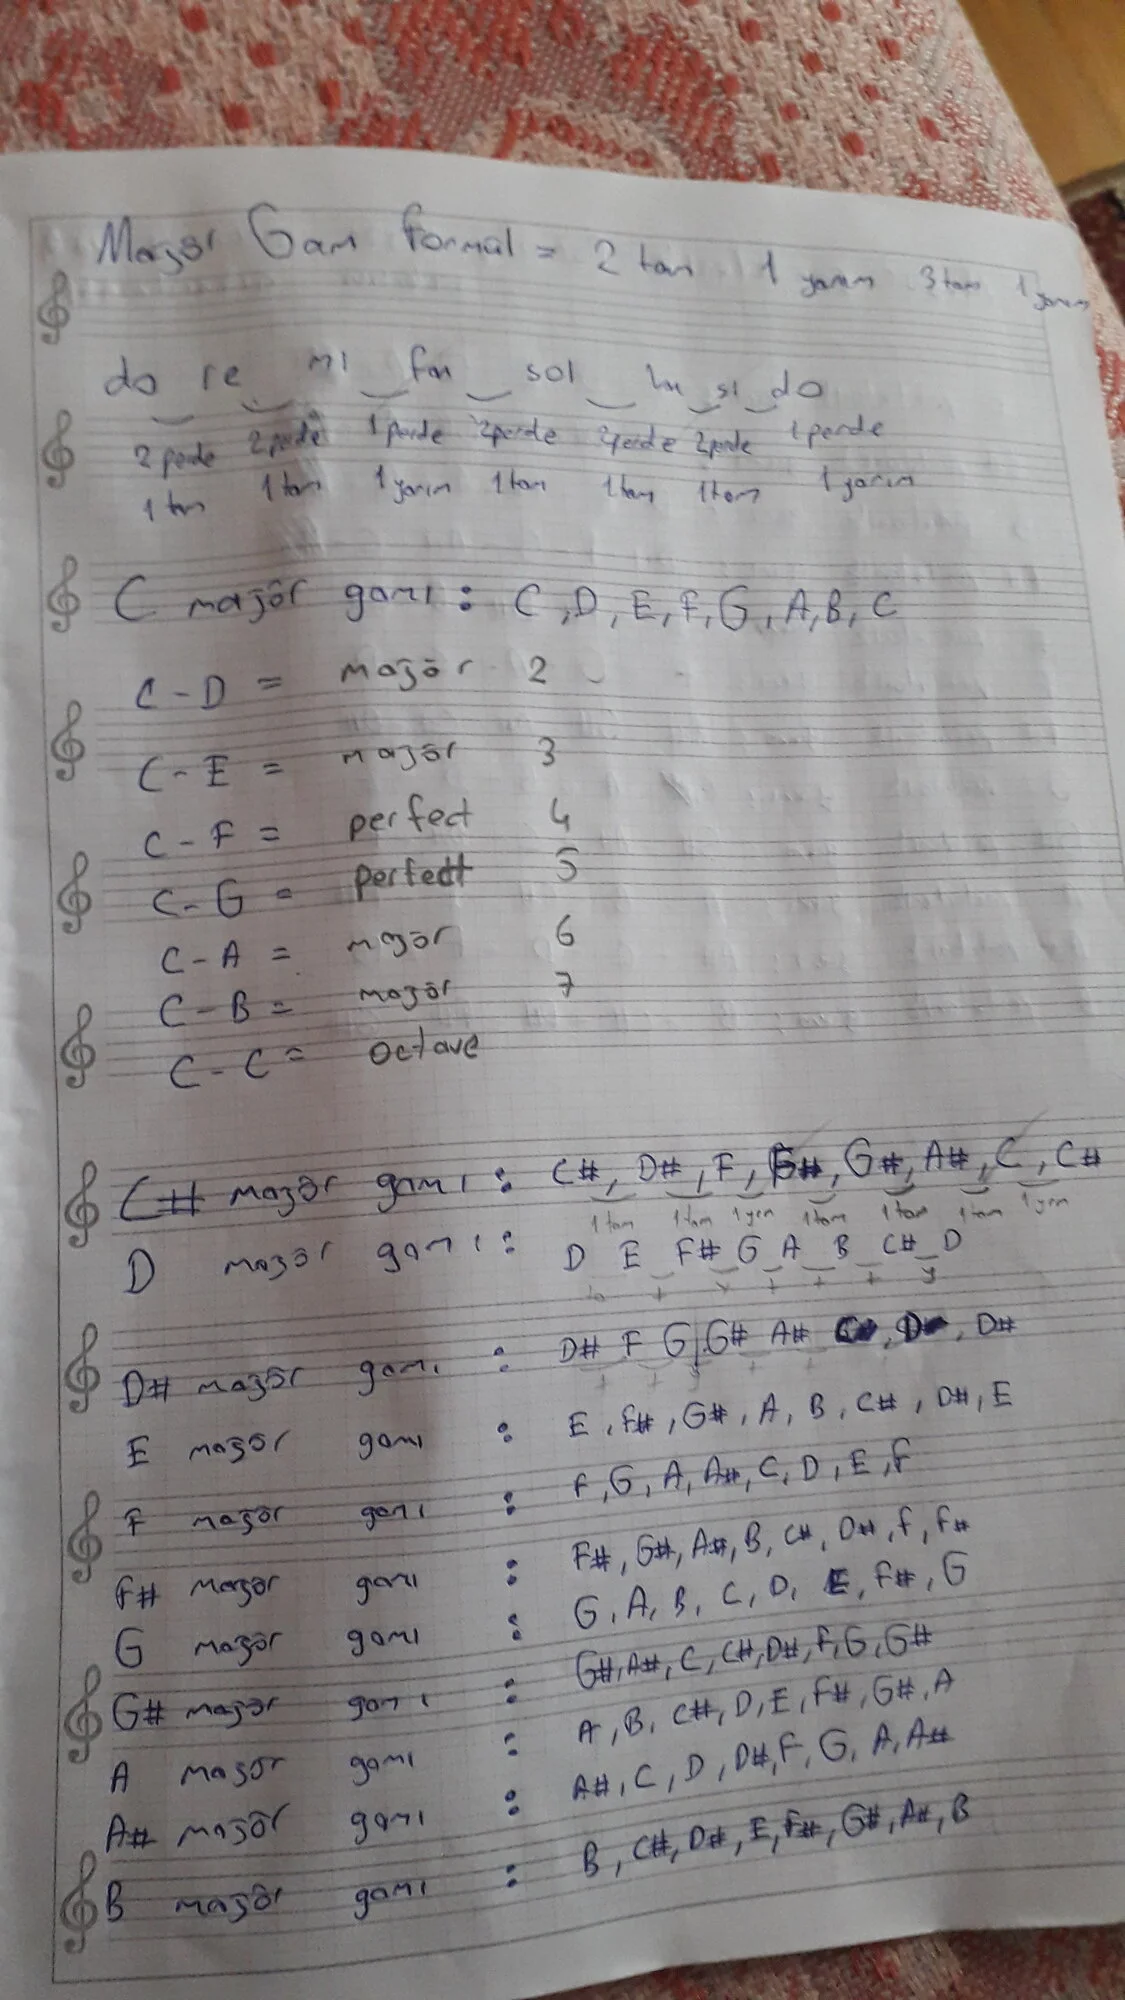 Majör Gam formül = 2 tam 1 yarım 3 tam 1 yarım
do re mi fa sol la si do
2 perde 2 perde 1 perde 2 perde 2 perde 2 perde 1 perde
1 tam 1 tam 1 yarım 1 tam 1 tam 1 tam 1 yarım
C majör gamı : C, D, E, F, G, A, B, C
C - D = majör 2
C - E = majör 3
C - F = perfect 4
C - G = perfect 5
C - A = majör 6
C - B = majör 7
C - C = octave
C# majör gamı : C#, D#, F, F#, G#, A#, C, C#
1 tam 1 tam 1 yrm 1 tam 1 tam 1 tam 1 yrm
D majör gamı : D E F# G A B C# D
t y t t t y
D# majör gamı : D# F G G# A# , D#
E majör gamı : E, F#, G#, A, B, C#, D#, E
F majör gamı : F, G, A, A#, C, D, E, F
F# majör gamı : F#, G#, A#, B, C#, D#, F, F#
G majör gamı : G, A, B, C, D, E, F#, G
G# majör gamı : G#, A#, C, C#, D#, F, G, G#
A majör gamı : A, B, C#, D, E, F#, G#, A
A# majör gamı : A#, C, D, D#, F, G, A, A#
B majör gamı : B, C#, D#, E, F#, G#, A#, B